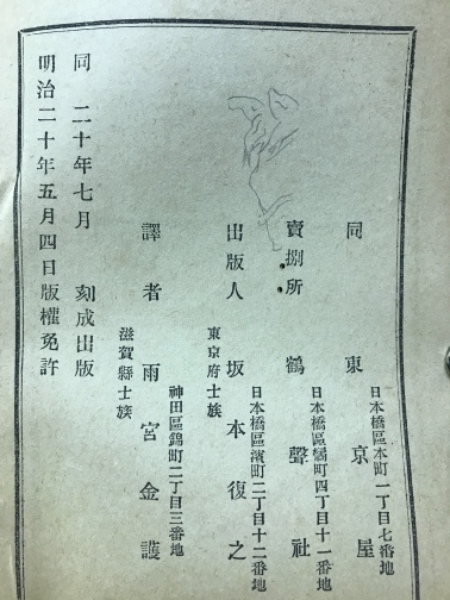 明治二十年五月四日版權免許
同　二十年七月　刻成出版
滋賀縣士族
譯者　雨宮金護
神田區錦町二丁目三番地
東京府士族
出版人　坂本復之
日本橋區濱町二丁目十二番地
賣捌所　鶴聲社
日本橋區橘町四丁目十一番地
同　東京屋
日本橋區本町一丁目七番地